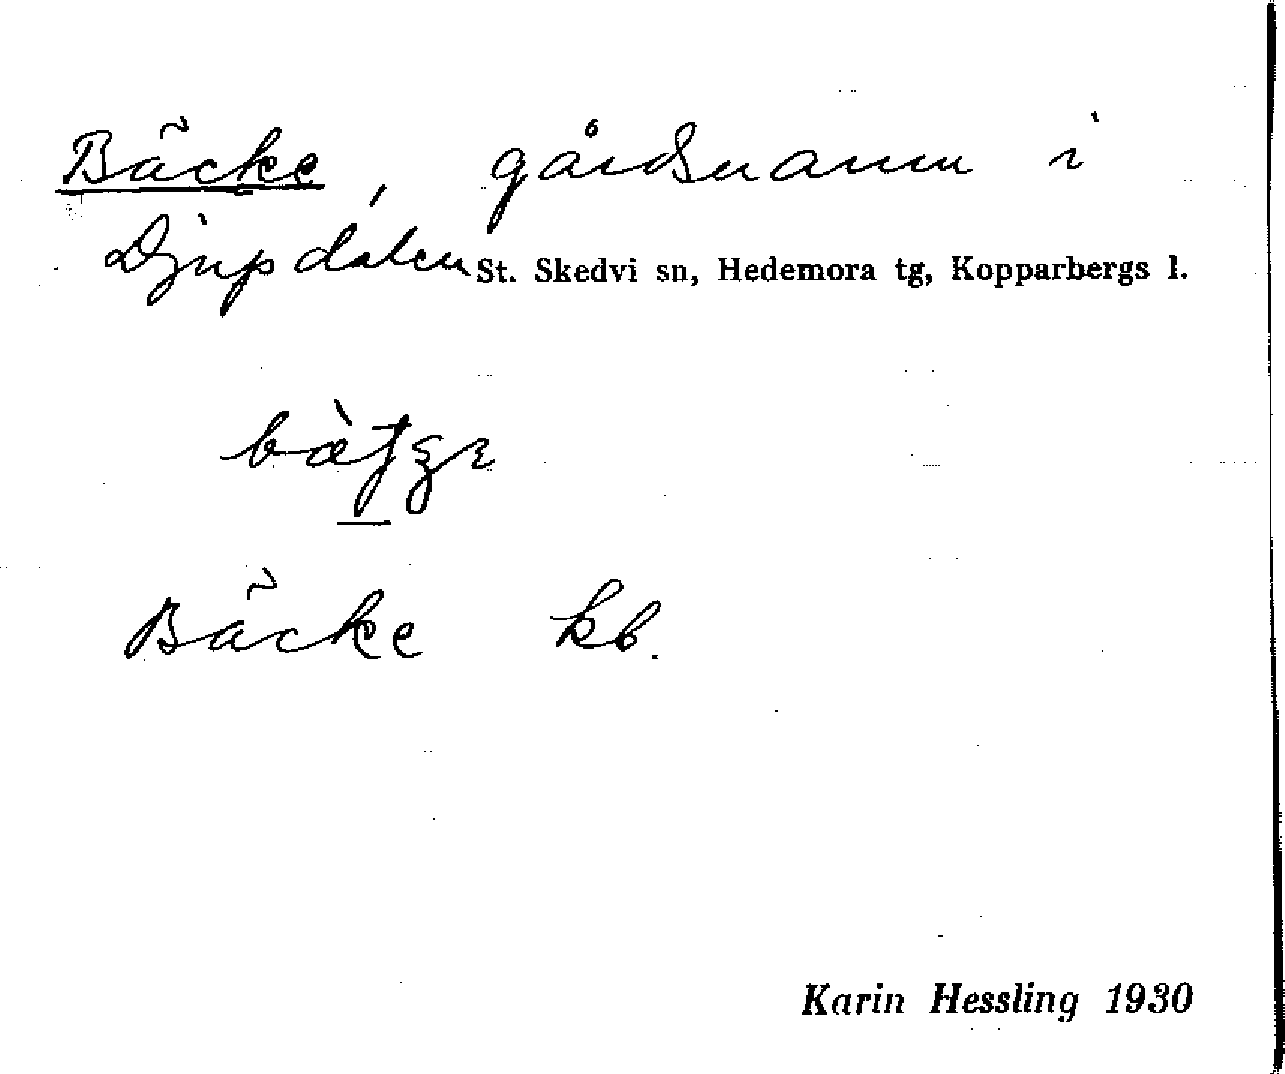 Bäcke, gårdsnamn i
Djupdalen St. Skedvi sn, Hedemora tg, Kopparbergs l.
Bäcke kb.
Karin Hessling 1930